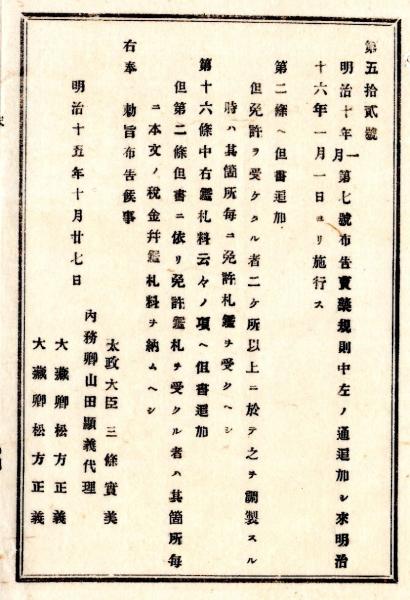 第五拾貳號
明治十年一月第七號布告賣藥規則中左ノ通追加シ來明治
十六年一月一日ヨリ施行ス
第二條ヘ但書追加
但免許ヲ受ケタル者二ケ所以上ニ於テ之ヲ調製スル
時ハ其箇所每ニ免許札鑑ヲ受クヘシ
第十六條中右鑑札料云々ノ項ヘ但書追加
但第二條但書ニ依リ免許鑑札ヲ受クル者ハ其箇所每
ニ本文ノ稅金幷鑑札料ヲ納ムヘシ
右奉 勅旨布告候事
明治十五年十月廿七日
太政大臣三條實美
內務卿山田顯義代理
大藏卿松方正義
大藏卿松方正義